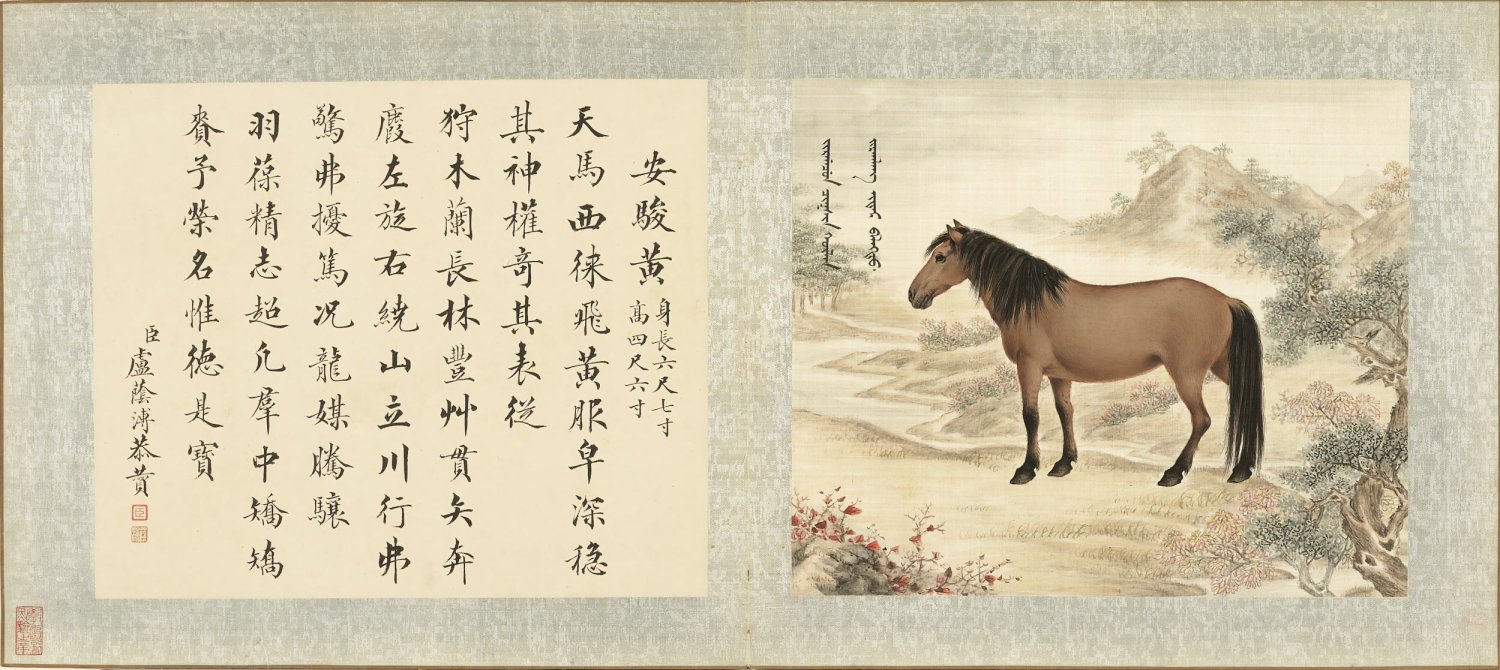 安駿黃
身長六尺七寸
高四尺六寸
天馬西徠飛黃服皁深穩
其神權奇其表從
狩木蘭長林豐艸貫矢奔
麚左旋右繞山立川行弗
驚弗擾篤況龍媒騰驤
羽葆精志超凡羣中矯矯
賚予榮名惟德是寶
臣盧蔭溥恭贊